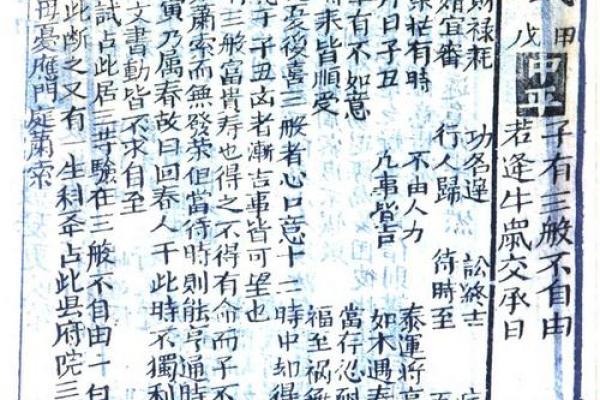 甲
戊
中平
子有三般不自由
若逢牛鼠交承日
財祿耗 功名遲 訟終吉
婚宜審 行人歸 待時至
有時 不由人力 泰運將亨
月日子丑 凡事皆吉 如木遇春
有不如意 當存忍耐
來皆順受 福至禍
憂後喜三般者心口意十二時中却得
于子丑凶者漸吉事皆可望也
有三般富貴壽也得之不得有命而子不
蕭索而無發榮但當待時則能亨通時
寅乃属春故曰回春人于此時不獨利
文書動皆不求自至
試占此居三等驗在三般不自由一句
此断之又有一生利占此县府院三
毋憂應門庭蕭索